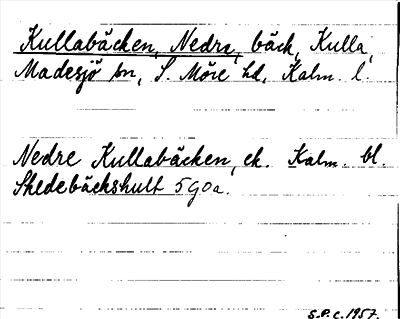 Kullabäcken, Nedre, bäck, Kulla,
Madesjö sn, S. Möre hd, Kalm. l.
Nedre Kullabäcken, ek. Kalm. bl.
Skedebäckshult 5G0a.
S.P.C. 1957.